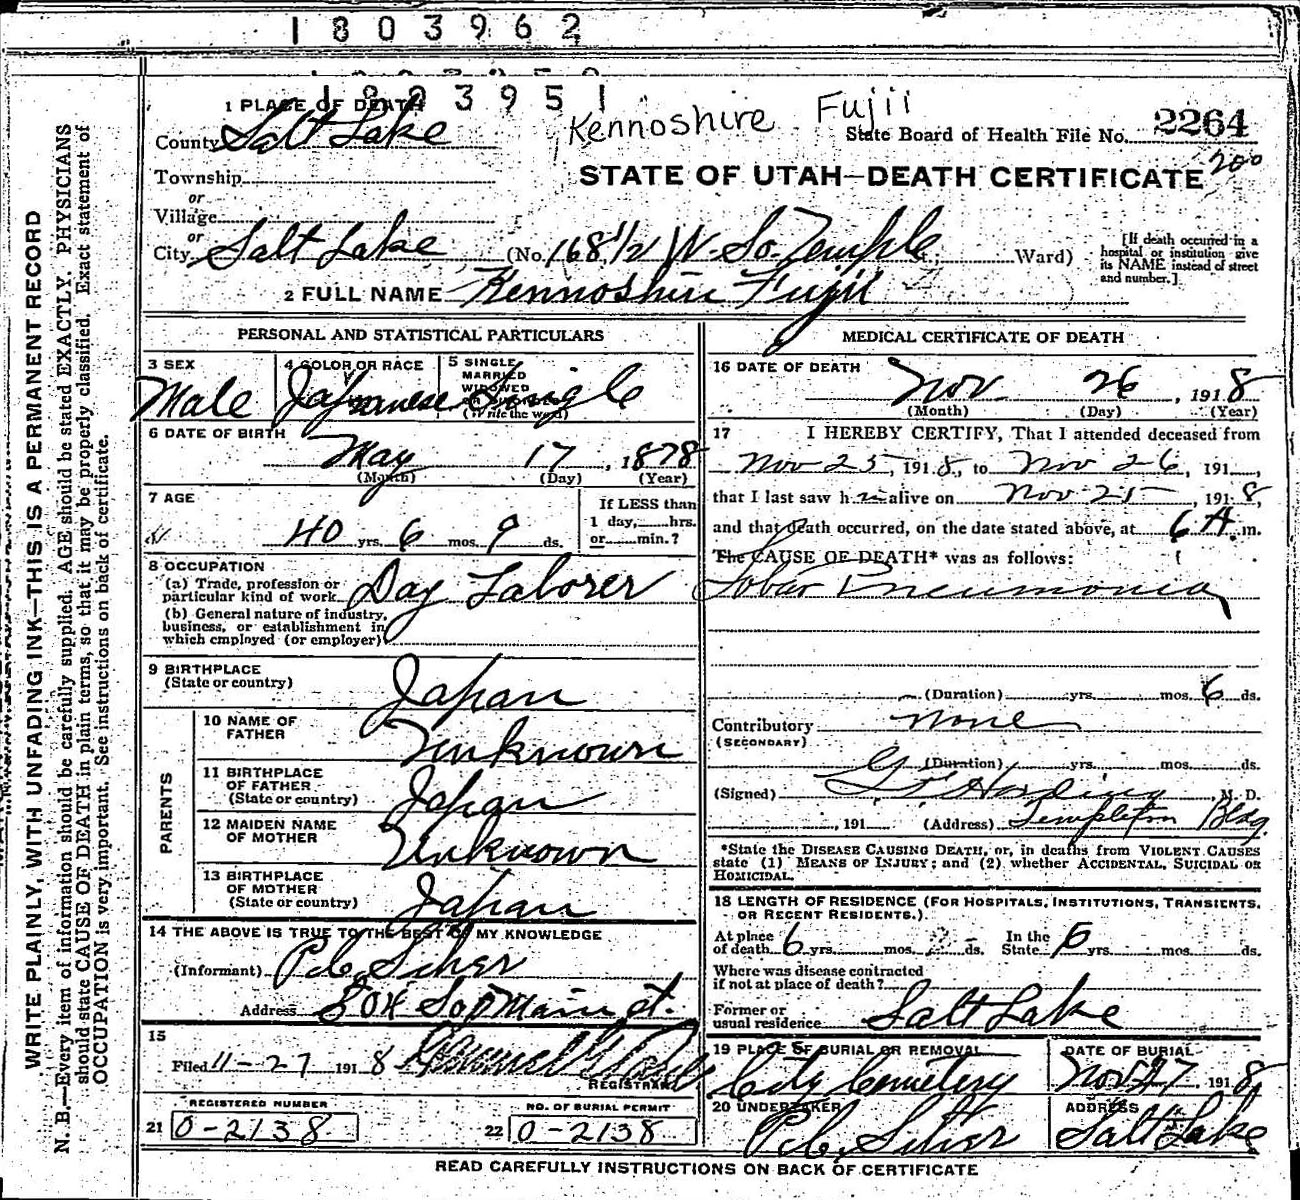 1803962
1803951
Kennoshire Fujii
1 PLACE OF DEATH
County Salt Lake
State Board of Health File No. 2264
200
STATE OF UTAH—DEATH CERTIFICATE
Township
or
Village
or
City Salt Lake (No. 168 1/2 W. So. Temple Ward)
[If death occurred in a hospital or institution give its NAME instead of street and number.]
2 FULL NAME Kennoshire Fujii
PERSONAL AND STATISTICAL PARTICULARS
3 SEX
Male
4 COLOR OR RACE
Japanese
5 SINGLE
MARRIED
WIDOWED
(Write the word)
Single
6 DATE OF BIRTH
May 17, 1878
(Month) (Day) (Year)
7 AGE
40 yrs. 6 mos. 9 ds.
If LESS than
1 day, hrs.
or min.?
8 OCCUPATION
(a) Trade, profession or
particular kind of work Day Laborer
(b) General nature of industry,
business, or establishment in
which employed (or employer)
9 BIRTHPLACE
(State or country) Japan
PARENTS
10 NAME OF
FATHER Unknown
11 BIRTHPLACE
OF FATHER
(State or country) Japan
12 MAIDEN NAME
OF MOTHER Unknown
13 BIRTHPLACE
OF MOTHER
(State or country) Japan
14 THE ABOVE IS TRUE TO THE BEST OF MY KNOWLEDGE
(Informant)
Address Main st.
15
Filed 11-27 1918
REGISTRAR
REGISTERED NUMBER
21 0-2138
NO. OF BURIAL PERMIT
22 0-2138
MEDICAL CERTIFICATE OF DEATH
16 DATE OF DEATH
Nov. 26, 1918
(Month) (Day) (Year)
17 I HEREBY CERTIFY, That I attended deceased from
Nov 25, 1918, to Nov 26, 191
that I last saw h alive on Nov 25, 1918
and that death occurred, on the date stated above, at 6 A. m.
The CAUSE OF DEATH* was as follows:
Lobar Pneumonia
(Duration) yrs. mos. 6 ds.
Contributory none
(SECONDARY)
(Duration) yrs. mos. ds.
(Signed) Harding M. D.
, 191 (Address) Templeton Bldg.
*State the DISEASE CAUSING DEATH, or, in deaths from VIOLENT CAUSES
state (1) MEANS OF INJURY; and (2) whether ACCIDENTAL, SUICIDAL OR
HOMICIDAL.
18 LENGTH OF RESIDENCE (FOR HOSPITALS, INSTITUTIONS, TRANSIENTS,
OR RECENT RESIDENTS.)
At place
of death 6 yrs. mos. ds. In the State yrs. mos. ds.
Where was disease contracted
if not at place of death?
Former or
usual residence Salt Lake
19 PLACE OF BURIAL OR REMOVAL
City Cemetery
DATE OF BURIAL
Nov 27 1918
20 UNDERTAKER
ADDRESS
Salt Lake
READ CAREFULLY INSTRUCTIONS ON BACK OF CERTIFICATE
WRITE PLAINLY, WITH UNFADING INK—THIS IS A PERMANENT RECORD
N. B.—Every item of information should be carefully supplied. AGE should be stated EXACTLY. PHYSICIANS
should state CAUSE OF DEATH in plain terms, so that it may be properly classified. Exact statement of
OCCUPATION is very important. See instructions on back of certificate.